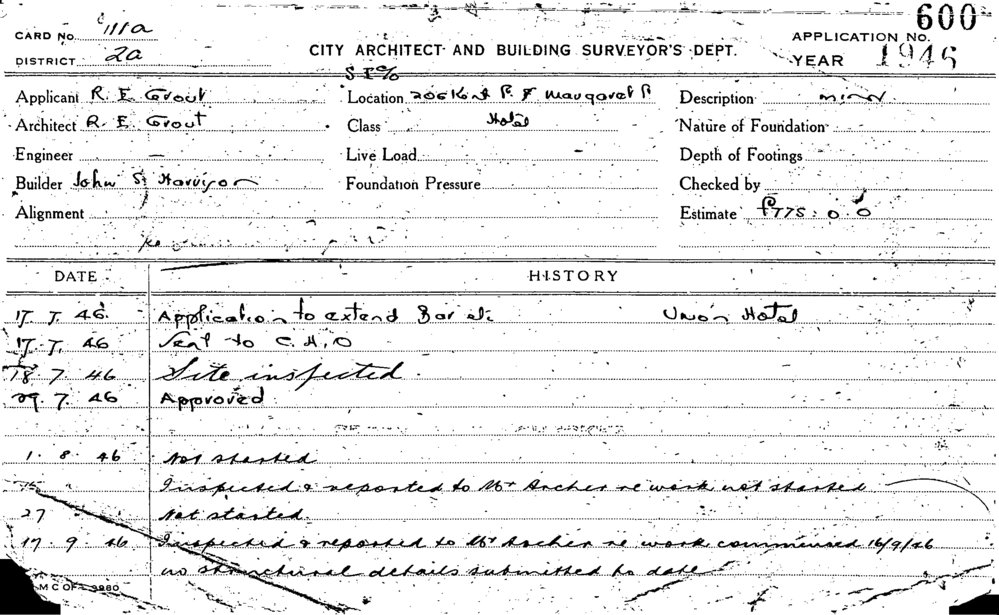 600
CARD No. 111a
APPLICATION NO.
DISTRICT 2a
CITY ARCHITECT AND BUILDING SURVEYOR'S DEPT.
YEAR 1946
Applicant R. E. Grout
Location 206 Kent & Margaret
Description minor
Architect R. E. Grout
Class Hotel
Nature of Foundation
Engineer —
Live Load
Depth of Footings
Builder John S. Harrison
Foundation Pressure
Checked by
Alignment
Estimate £775:0.0
DATE HISTORY
17. 7. 46. Application to extend Bar etc Union Hotel
17. 7. 46 Sent to C.H.O
18. 7. 46 Site inspected.
29. 7. 46 Approved
1. 8. 46 Not started
15 Inspected & reported to Mr Archer re work not started
27 Not started.
17. 9. 46 Inspected & reported to Mr Archer re work commenced 16/9/46
no structural details submitted to date
M C OF S 3980